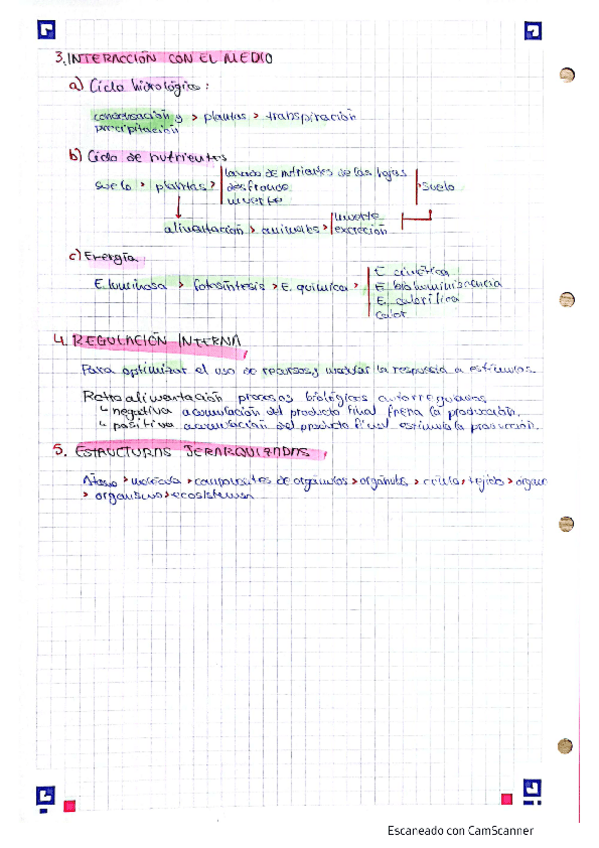 3. INTERACCIÓN CON EL MEDIO
a) Ciclo hidrológico:
condensación y > plantas > transpiración
precipitación
b) Ciclo de nutrientes
lavado de nutrientes de las hojas
suelo > plantas > desfronde > suelo
muerte
muerte
alimentación > animales > excreción
c) Energía
E. cinética
E. luminosa > fotosíntesis > E. química > E. bioluminiscencia
E. calorífica
Calor
4. REGULACIÓN INTERNA
Para optimizar el uso de recursos, y modular la respuesta a estímulos.
Retroalimentación procesos biológicos autorregulados.
negativa acumulación del producto final frena la producción.
positiva acumulación del producto final estimula la producción.
5. ESTRUCTURAS JERARQUIZADAS
Átomo > molécula > componentes de orgánulos > orgánulos > célula, tejido > órgano
> organismo > ecosistema
Escaneado con CamScanner